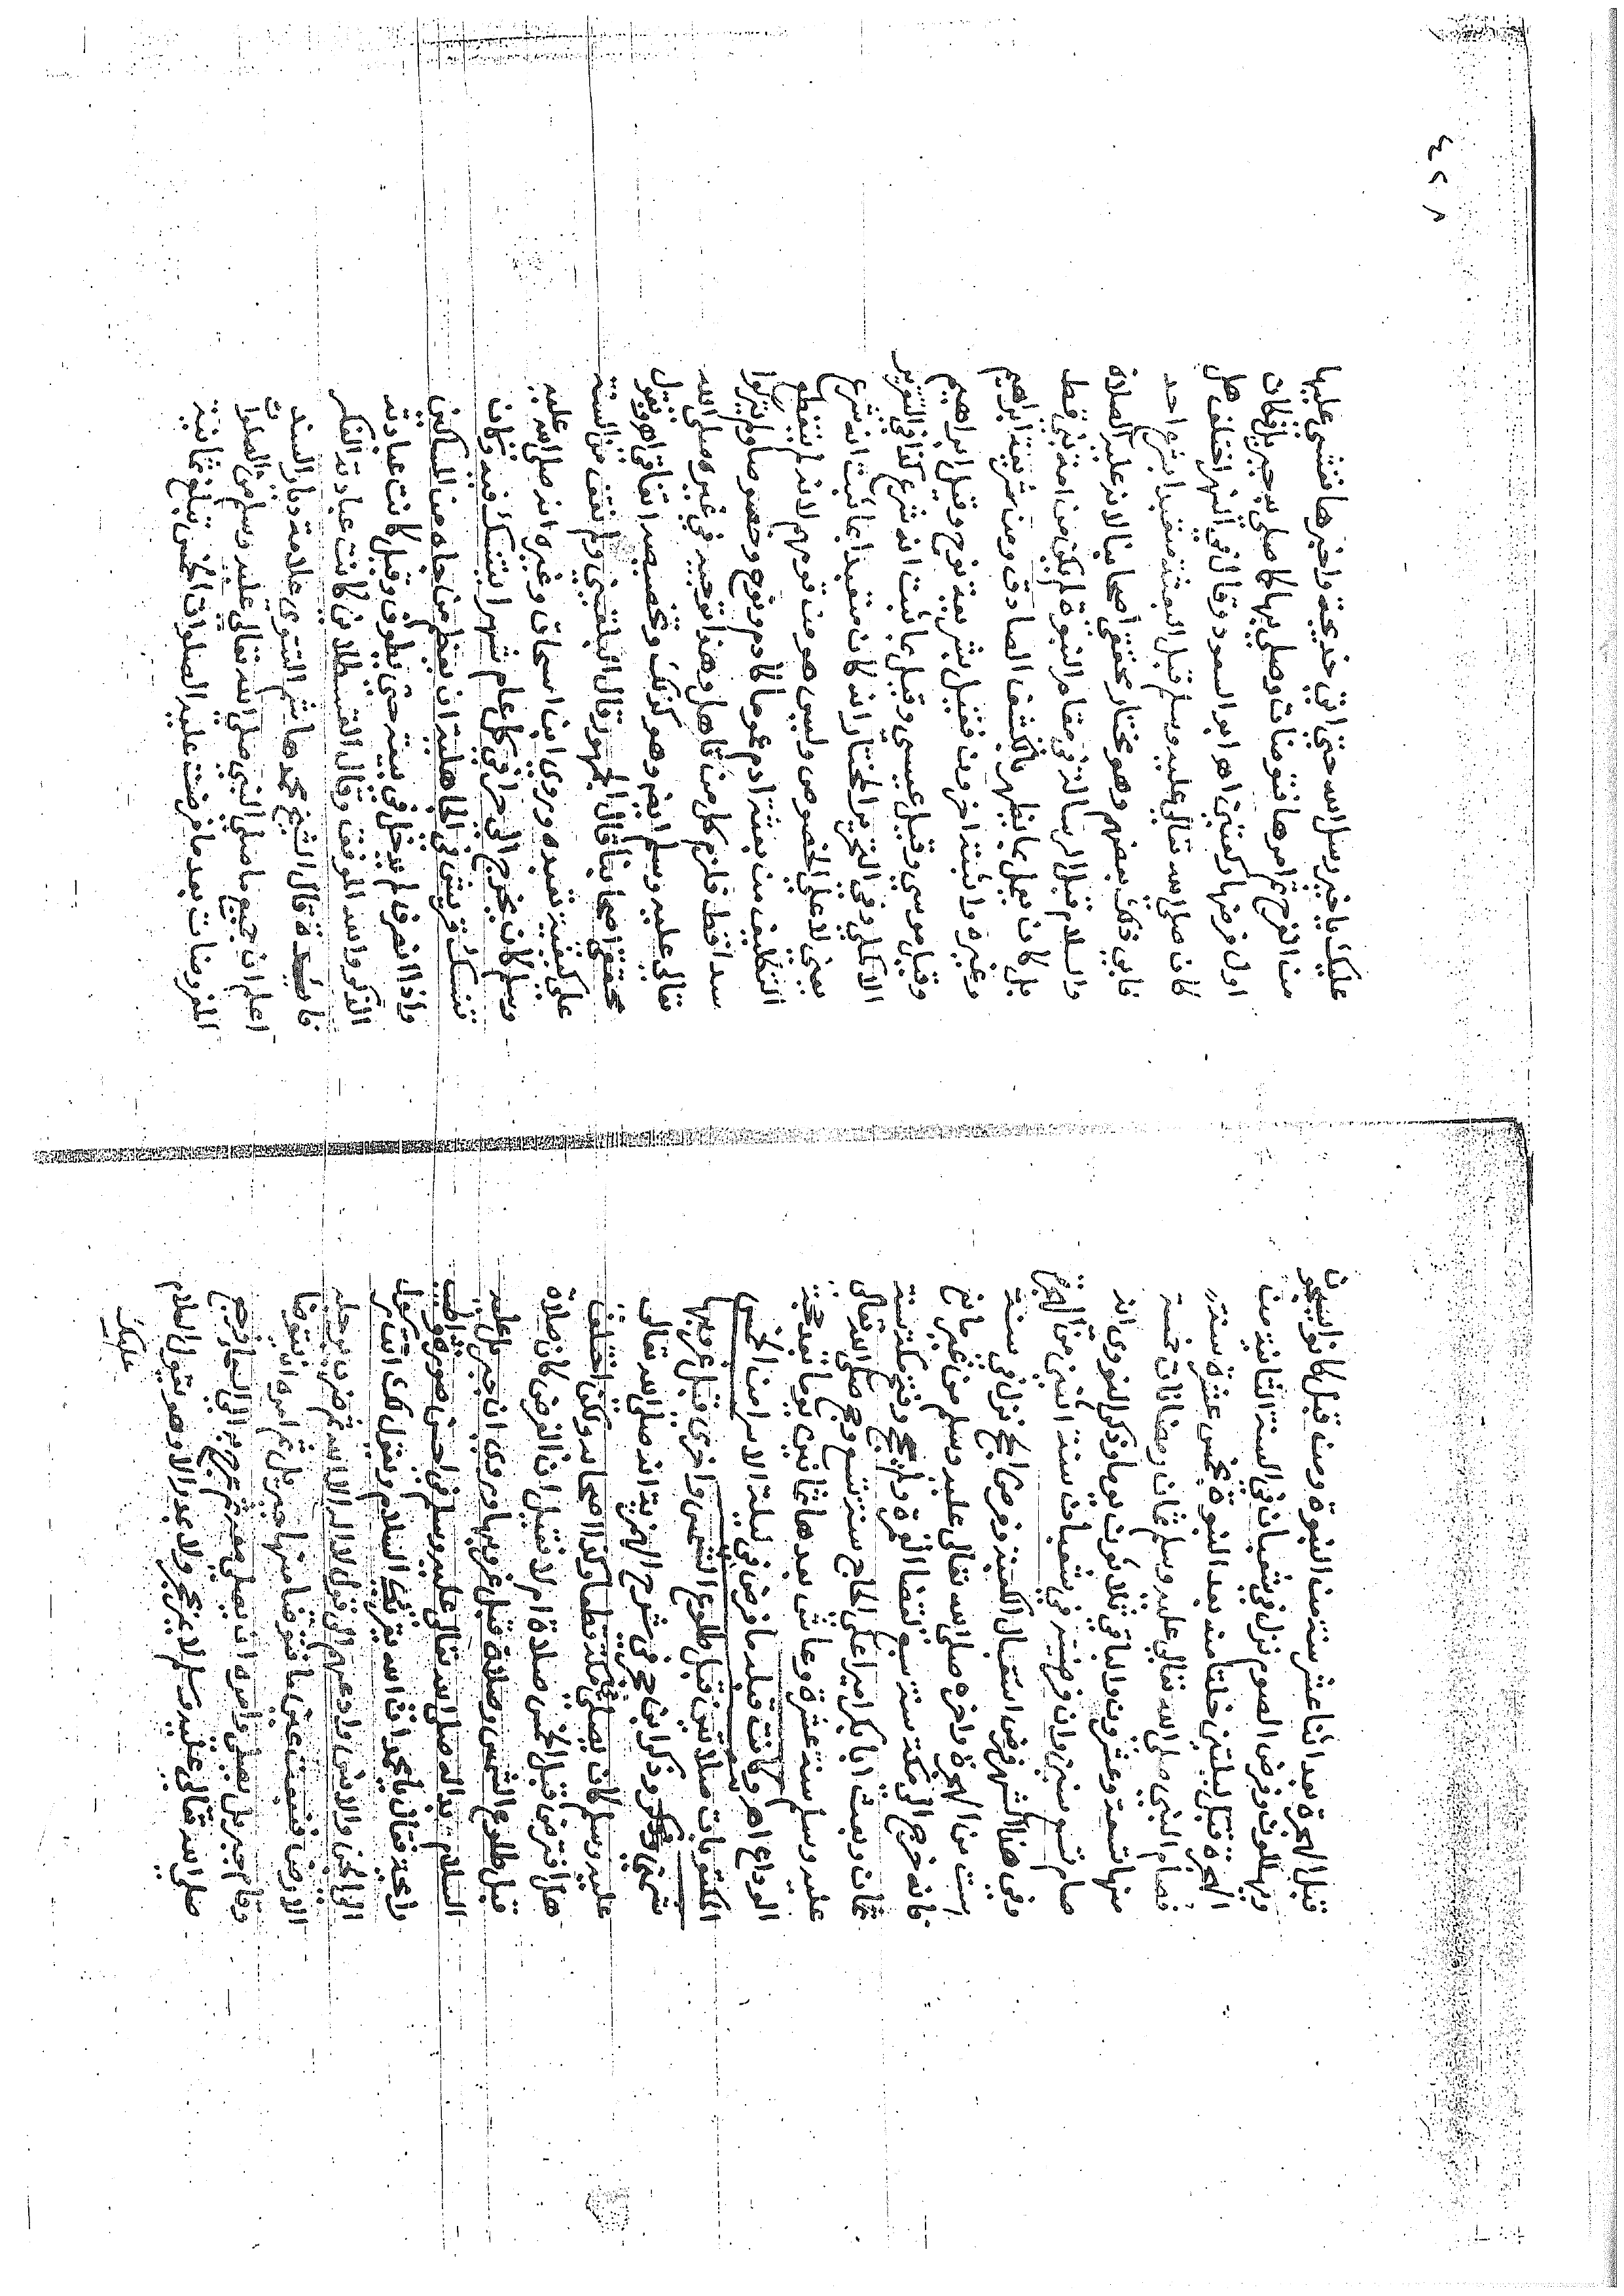 قبل الهجرة بعد اثنا عشر سنة من النبوة ومن قبل كانوا يسبحون
ويهللون وفرض الصوم نزل في شعبان في السنة الثانية من
الهجرة قبل بليلتين خلتا منه بعد النبوة بخمس عشرة سنة
فصام النبي صلى الله تعالى عليه وسلم ثمان رمضانات خمسة
منها تسعة وعشرون والباقي ثلاثون يوما وذكر النووي انه
صام تسع سنين وان فرضيته في شعبان سنة اثنين من الهجرة
وفي هذا الشهر فرض استقبال الكعبة وفرض الحج نزل في سنة
ست من الهجرة واخره صلى الله تعالى عليه وسلم من غير مانع
فانه خرج الى مكة سنة سبع لقضا العمرة ولم يحج وفتح مكة سنة
ثمان وبعث ابا بكر اميرا على الحاج سنة تسع وحج صلى الله تعالى
عليه وسلم سنة عشرة وعاش بعدها ثمانين يوما بعد حجة
الوداع اهـ وكانت قبله ما فرض في ليلة الاسرا من الخمس
المكتوبات صلاتين قبل طلوع الشمس واخرى قبل غروبها
شمني وذكر ابن حجر في شرح الهمزية انه صلى الله تعالى
عليه وسلم كان يصلي بمكة قطعا وكذا اصحابه ولكن اختلف
هل افترض قبل الخمس صلاة ام لا فقيل ان الفرض كان صلاة
قبل طلوع الشمس وصلاة قبل غروبها وروي ان جبريل عليه
السلام بدا له صلى الله تعالى عليه وسلم في احسن صورة واطيب
رايحة فقال يا محمد ان الله يقريك السلام ويقول لك انت رسول
الى الجن والانس فادعهم الى قول لا اله الا الله ثم ضرب برجله
الارض فنبعت عين ما فتوضا منها جبريل ثم امره ان يتوضا
وقام جبريل يصلي وامره ان يصلي معه ثم عرج الى السما ورجع
صلى الله تعالى عليه وسلم لا يمر بحجر ولا مدر الا وهو يقول السلام
عليك
عليك يا خير رسل الله حتى اتى خديجة واخبرها فغشي عليها
من الفرح ثم امرها فتوضات وصلى بها كما صلى به جبريل فكان
اول فرضها ركعتين اهـ ابو السعود وقال في النهر اختلف هل
كان صلى الله تعالى عليه وسلم قبل البعثة متعبدا بشرع احد
فابى ذلك بعضهم وهو مختار محققي اصحابنا لانه عليه الصلاة
والسلام قبل الرسالة في مقام النبوة لم يكن من امة نبي قط
بل كان يعمل بما يظهر بالكشف الصادق ومن شريعة ابراهيم
وغيره واثبته اخرون فقيل بشريعة نوح وقيل ابراهيم
وقيل موسى وقيل عيسى وقيل بما ثبت انه شرع كذا في التقرير
الاكملي وفي التحرير المختار انه كان متعبدا بما ثبت انه شرع
يعني لا على الخصوص وليس هو من قومهم لانه لم ينقطع
التكليف من بعثة ادم عموما كادم ونوح وخصوصا ولم يتركوا
سدا قط فلزم كل من تاهل وهذا توجيه في غيره صلى الله
تعالى عليه وسلم ايضا وهو كذلك وتخصيصه اتفاقي اهـ وبقول
محققي اصحابنا قال الجمهور وقال البلقيني ولم نقف من السنة
على كيفية تعبده وروى ابن اسحاق وغيره انه صلى الله عليه
وسلم كان يخرج الى حرا في كل عام شهرا يتنسك فيه وكان
تنسك قريش في الجاهلية ان يطعم من جاه من المساكين
واذا انصرف لم يدخل في بيته حتى يطوف وقيل كانت عبادته
الذكر والله الموفق وقال القسطلاني كانت عبادته الفكر
فايدة قال الشيخ محمد هاشم التتوي علامة ديار السند
اعلم ان جميع ما صلى النبي صلى الله تعالى عليه وسلم من الصلوات
المفروضات بعد ما فرضت عليه الصلوات الخمس تبلغ ثمانية